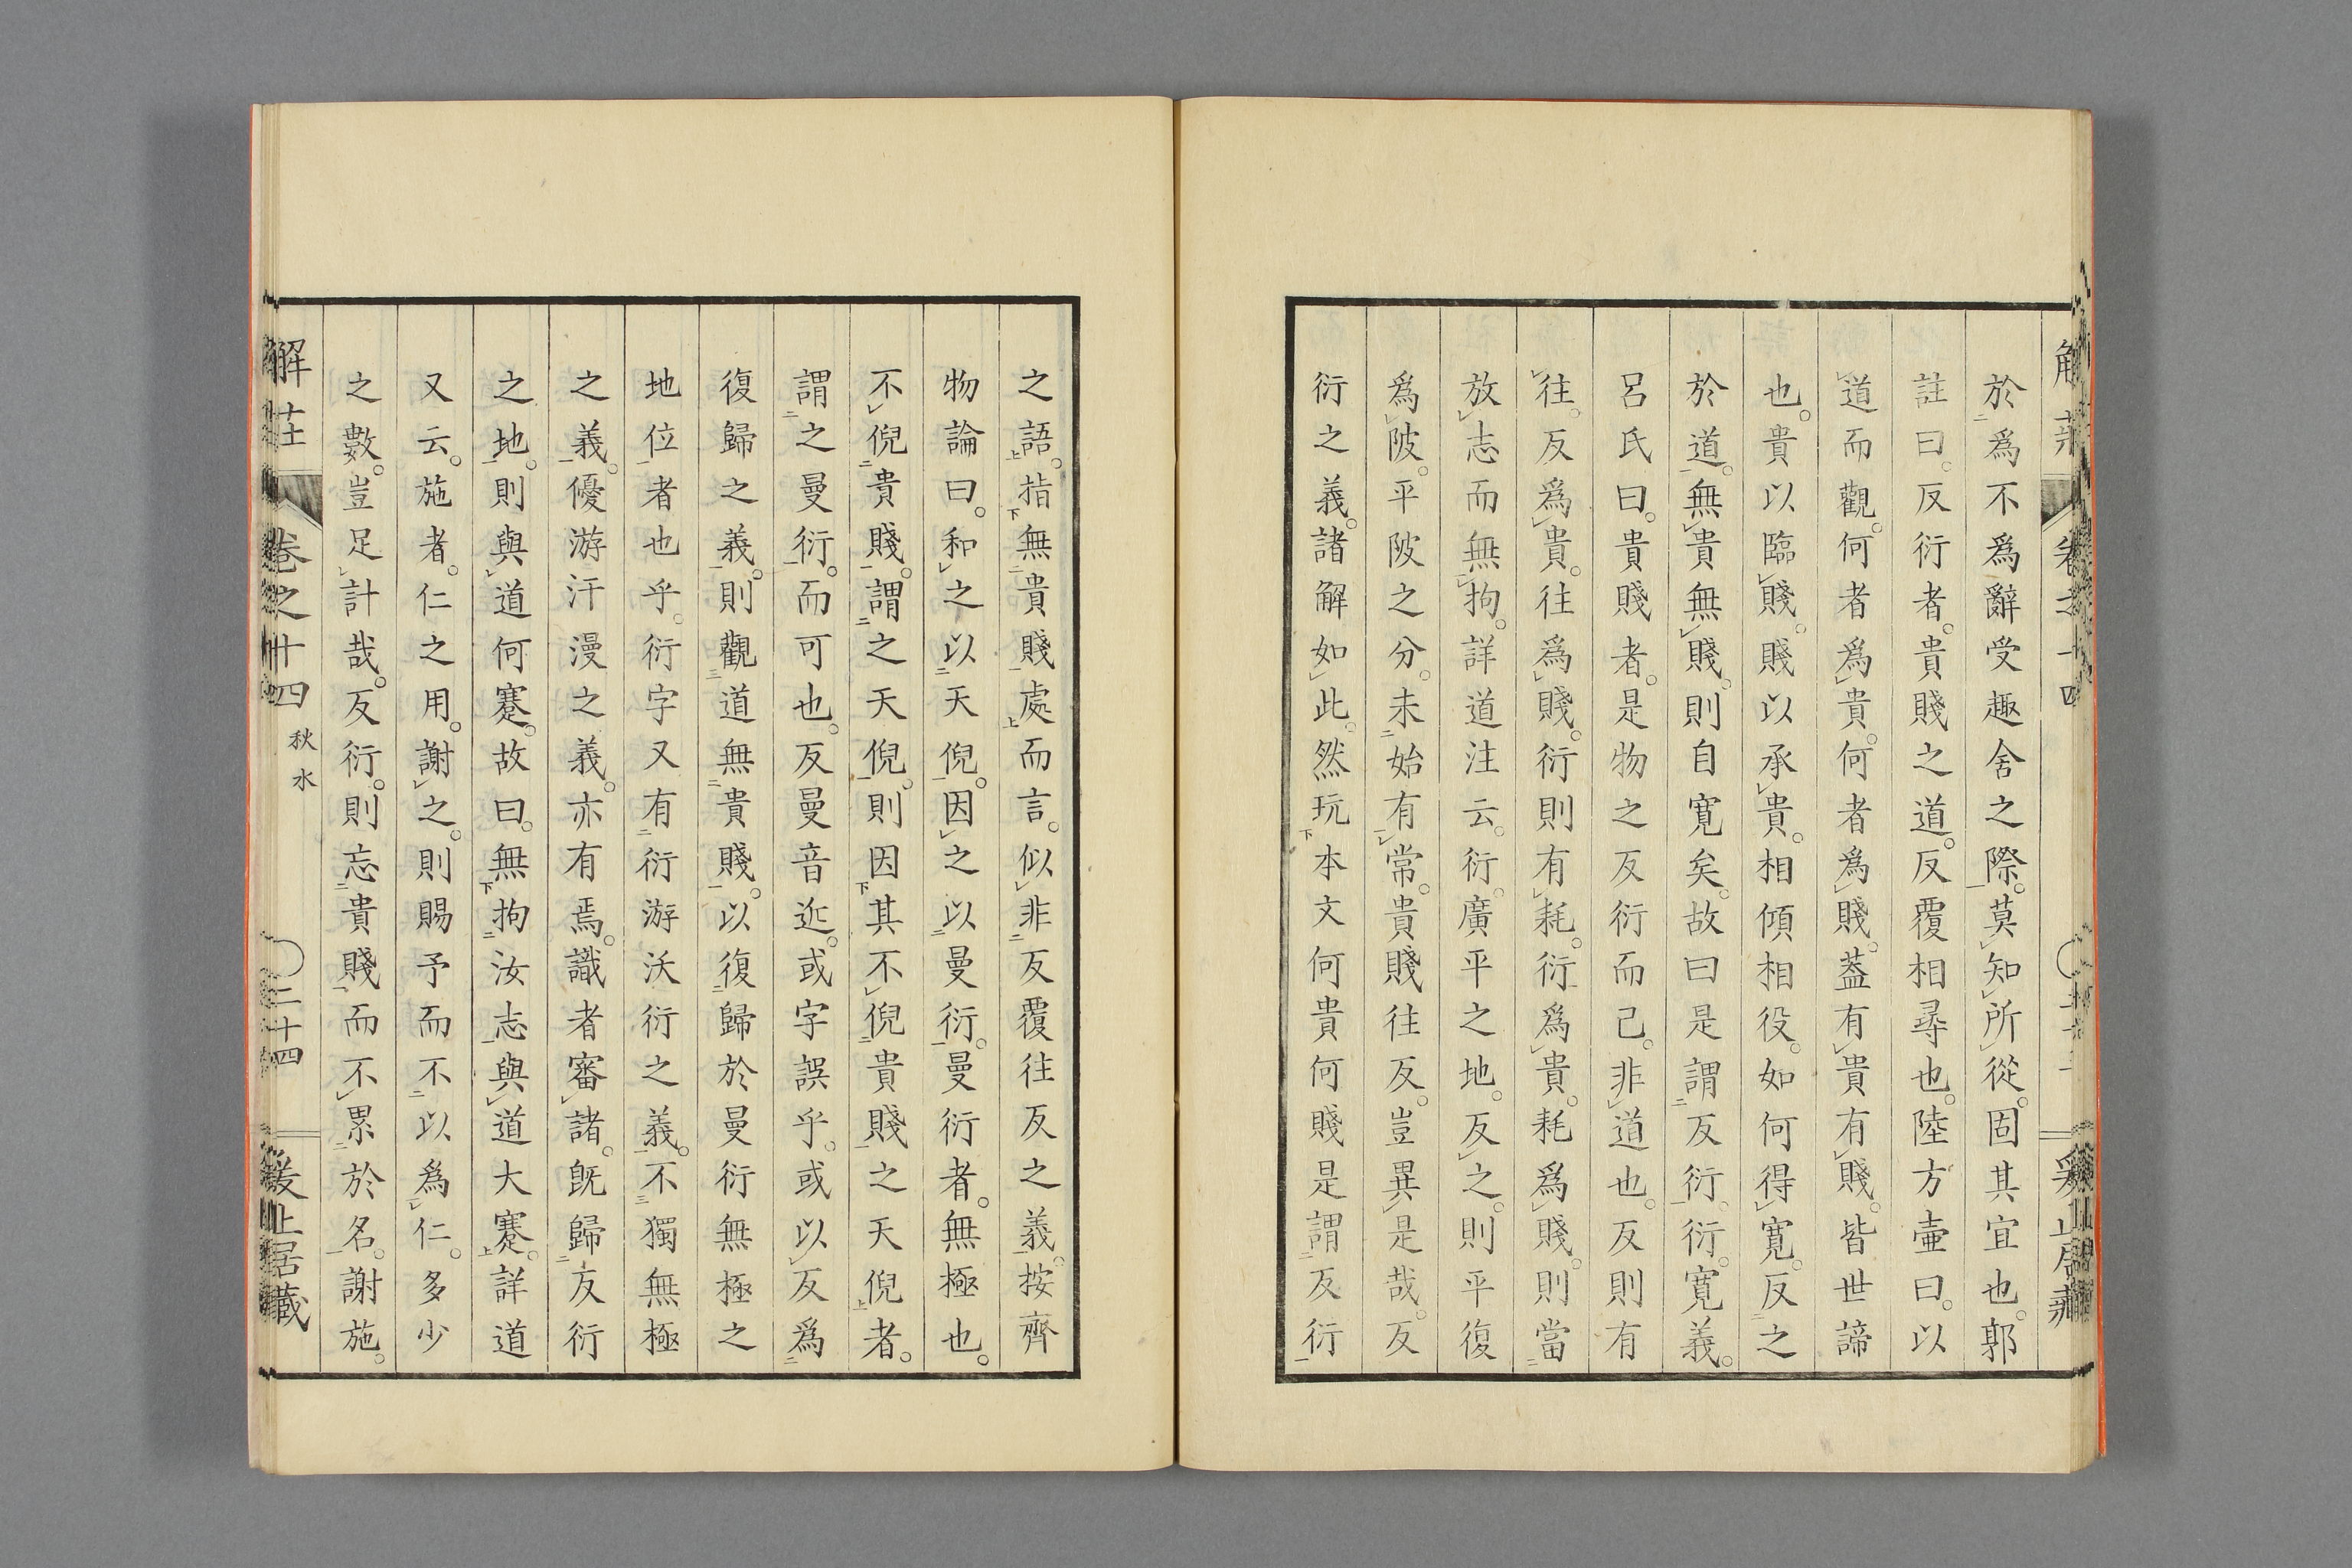 於爲不爲辭受趣舍之際。莫知所從。固其宜也。郭
註曰。反衍者。貴賤之道。反覆相尋也。陸方壷曰。以
道而觀。何者爲貴。何者爲賤。葢有貴有賤。皆世諦
也。貴以臨賤。賤以承貴。相傾相役。如何得寛。反之
於道。無貴無賤。則自寛矣。故曰是謂反衍。衍。寛義。
呂氏曰。貴賤者。是物之反衍而已。非道也。反則有
往。反爲貴。往爲賤。衍則有耗。衍爲貴。耗爲賤。則當
放志而無拘。詳道注云。衍。廣平之地。反之。則平復
爲陂。平陂之分。未始有常。貴賤往反。豈異是哉。反
衍之義。諸解如此。然玩本文何貴何賤是謂反衍
之語。指無貴賤處而言。似非反覆往反之義。按齊
物論曰。和之以天倪。因之以曼衍。曼衍者。無極也。
不倪貴賤。謂之天倪。則因其不倪貴賤之天倪者。
謂之曼衍。而可也。反曼音近。或字誤乎。或以反爲
復歸之義。則觀道無貴賤。以復歸於曼衍無極之
地位者也乎。衍字又有衍游沃衍之義。不獨無極
之義。優游汗漫之義。亦有焉。識者審諸。旣歸反衍
之地。則與道何蹇。故曰。無拘汝志與道大蹇。詳道
又云。施者。仁之用。謝之。則賜予而不以爲仁。多少
之數。豈足計哉。反衍。則忘貴賤而不累於名。謝施。
解莊 卷之十四 秋水 ○二十四